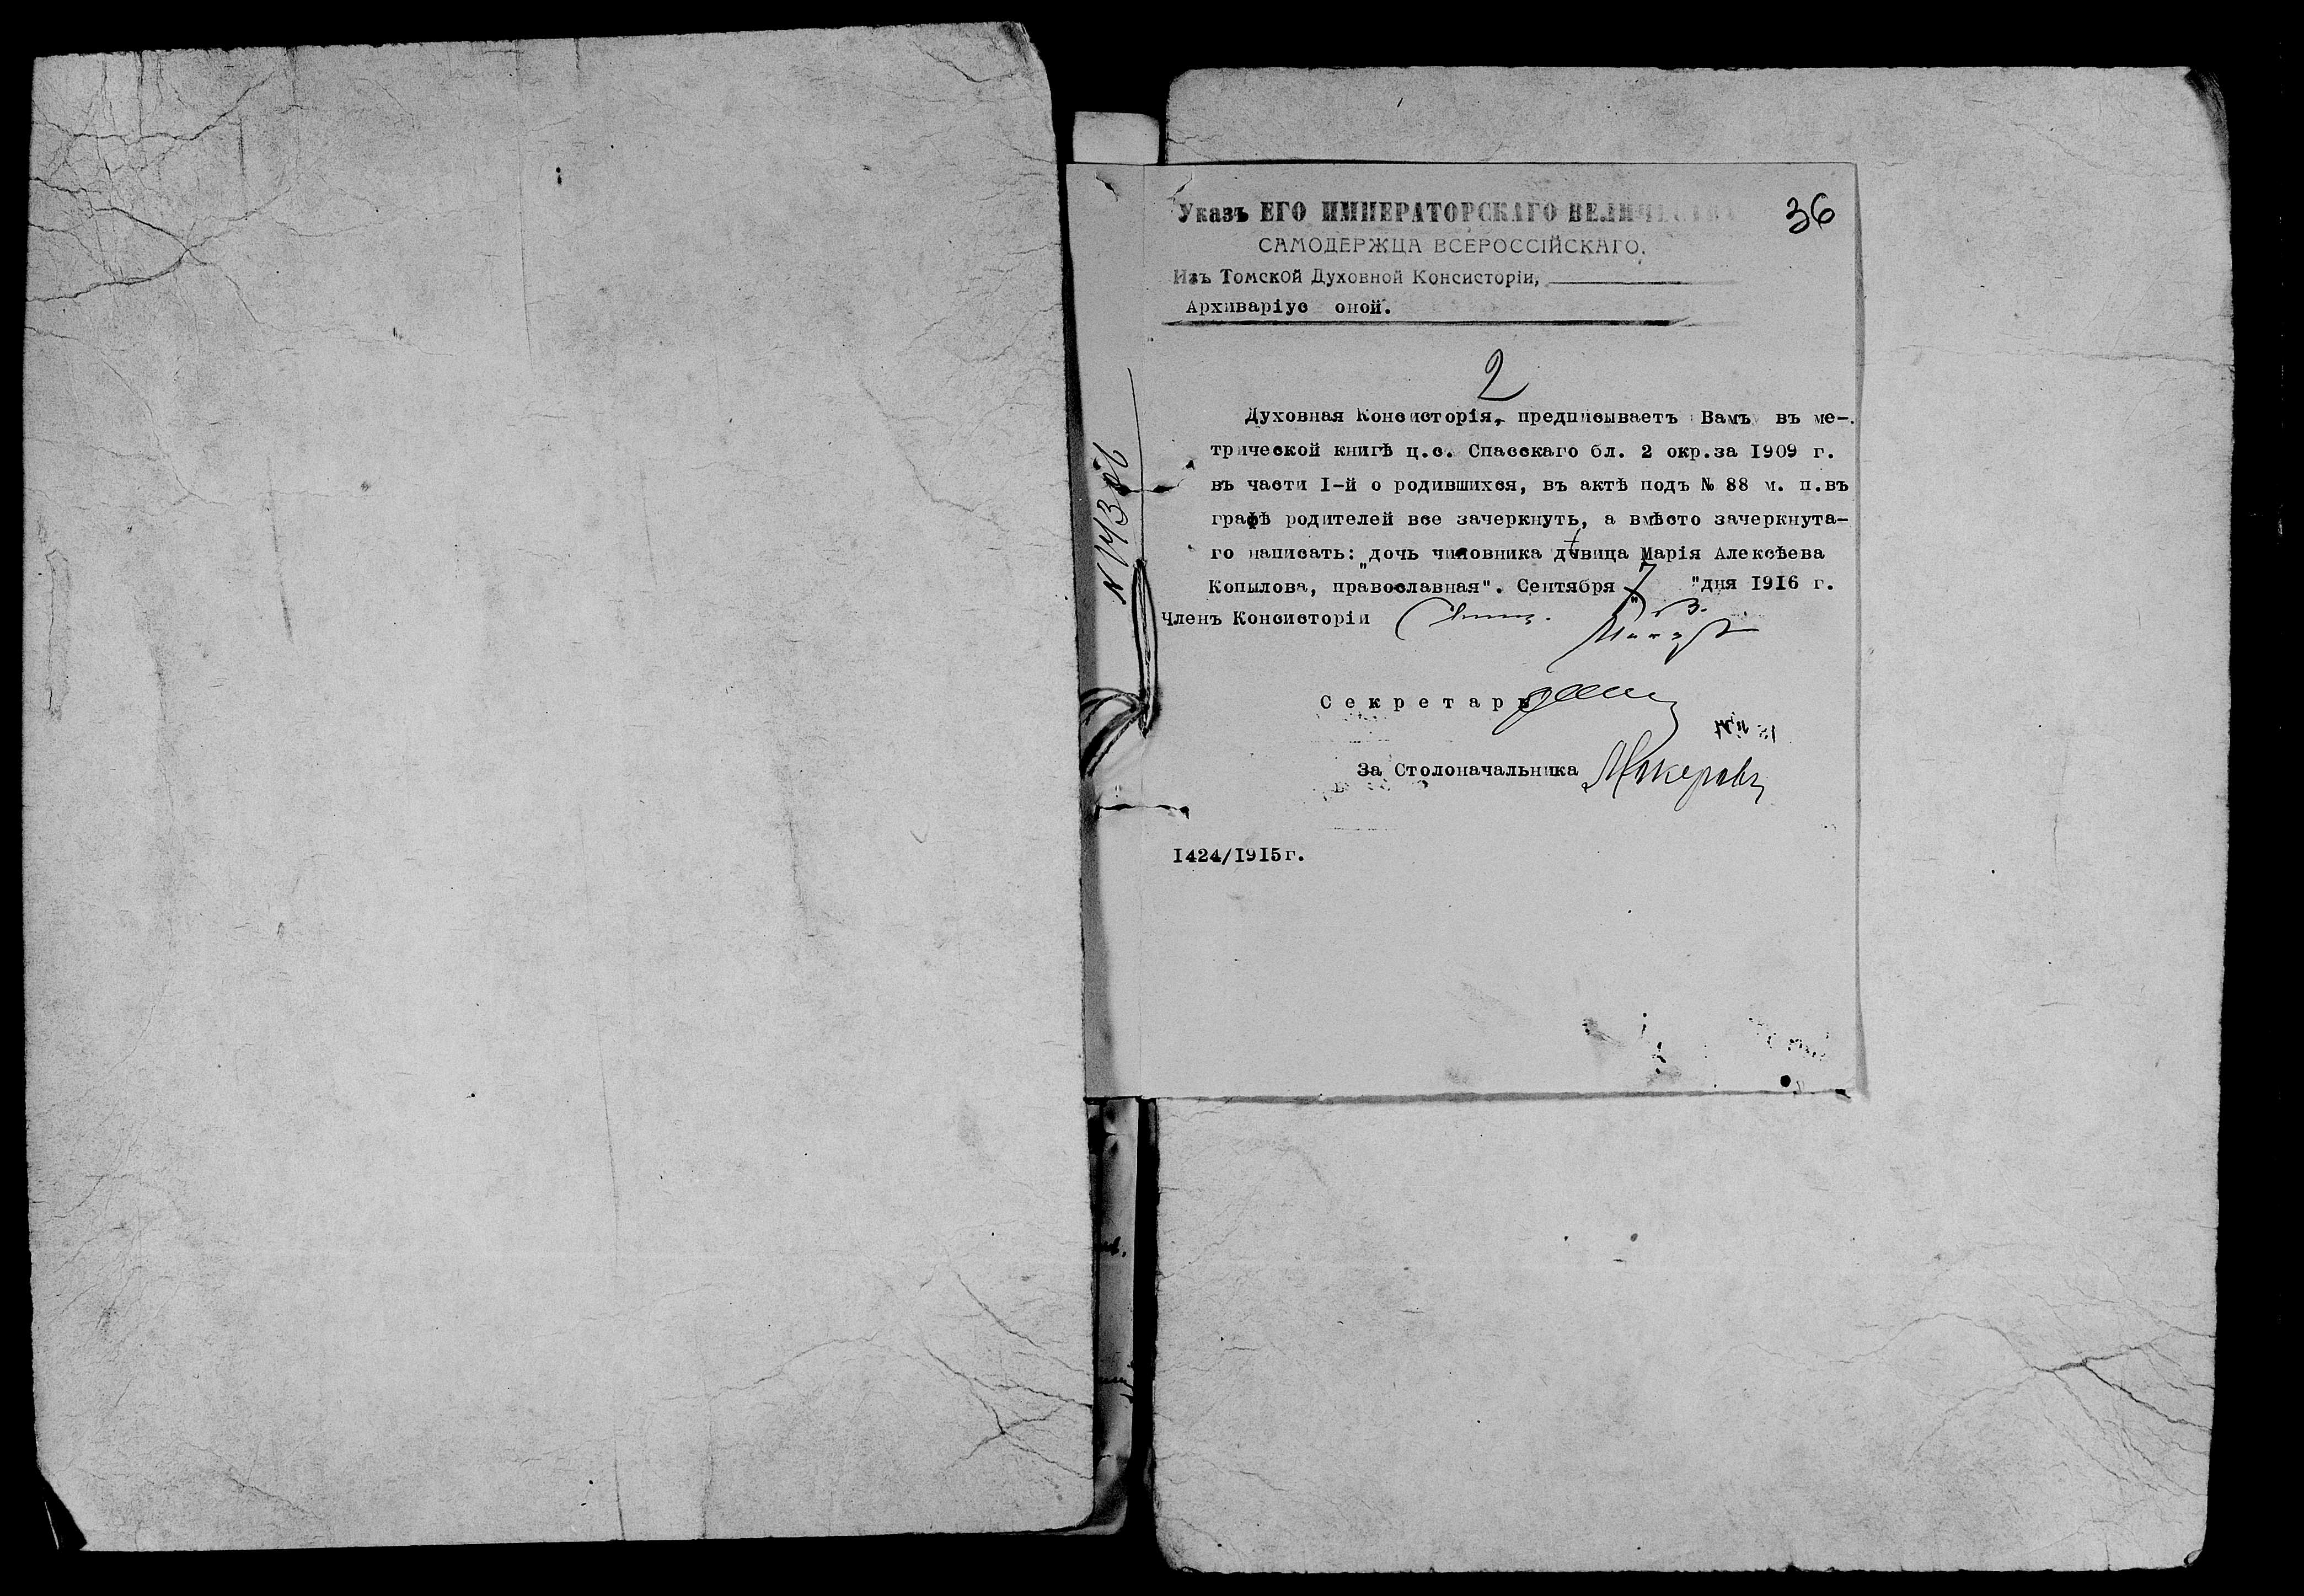 36
Указъ ЕГО ИМПЕРАТОРСКАГО ВЕЛИЧЕСТВА
САМОДЕРЖЦА ВСЕРОССІЙСКАГО,
Изъ Томской Духовной Консисторіи,
Архиваріус оной.
2
Духовная Консисторія, предписываетъ Вамъ въ ме-
трической книгѣ ц.с. Спасскаго бл. 2 окр.за 1909 г.
въ части I-й о родившихся, въ актѣ подъ № 88 м. п.въ
графѣ родителей все зачеркнуть, а вмѣсто зачеркнута-
го написать: "дочь чиновника дѣвица Марія Алексѣева
Копылова, православная". Сентября "7" дня 1916 г.
Членъ Консисторіи
Секретарь
За Столоначальника
1424/1915г.